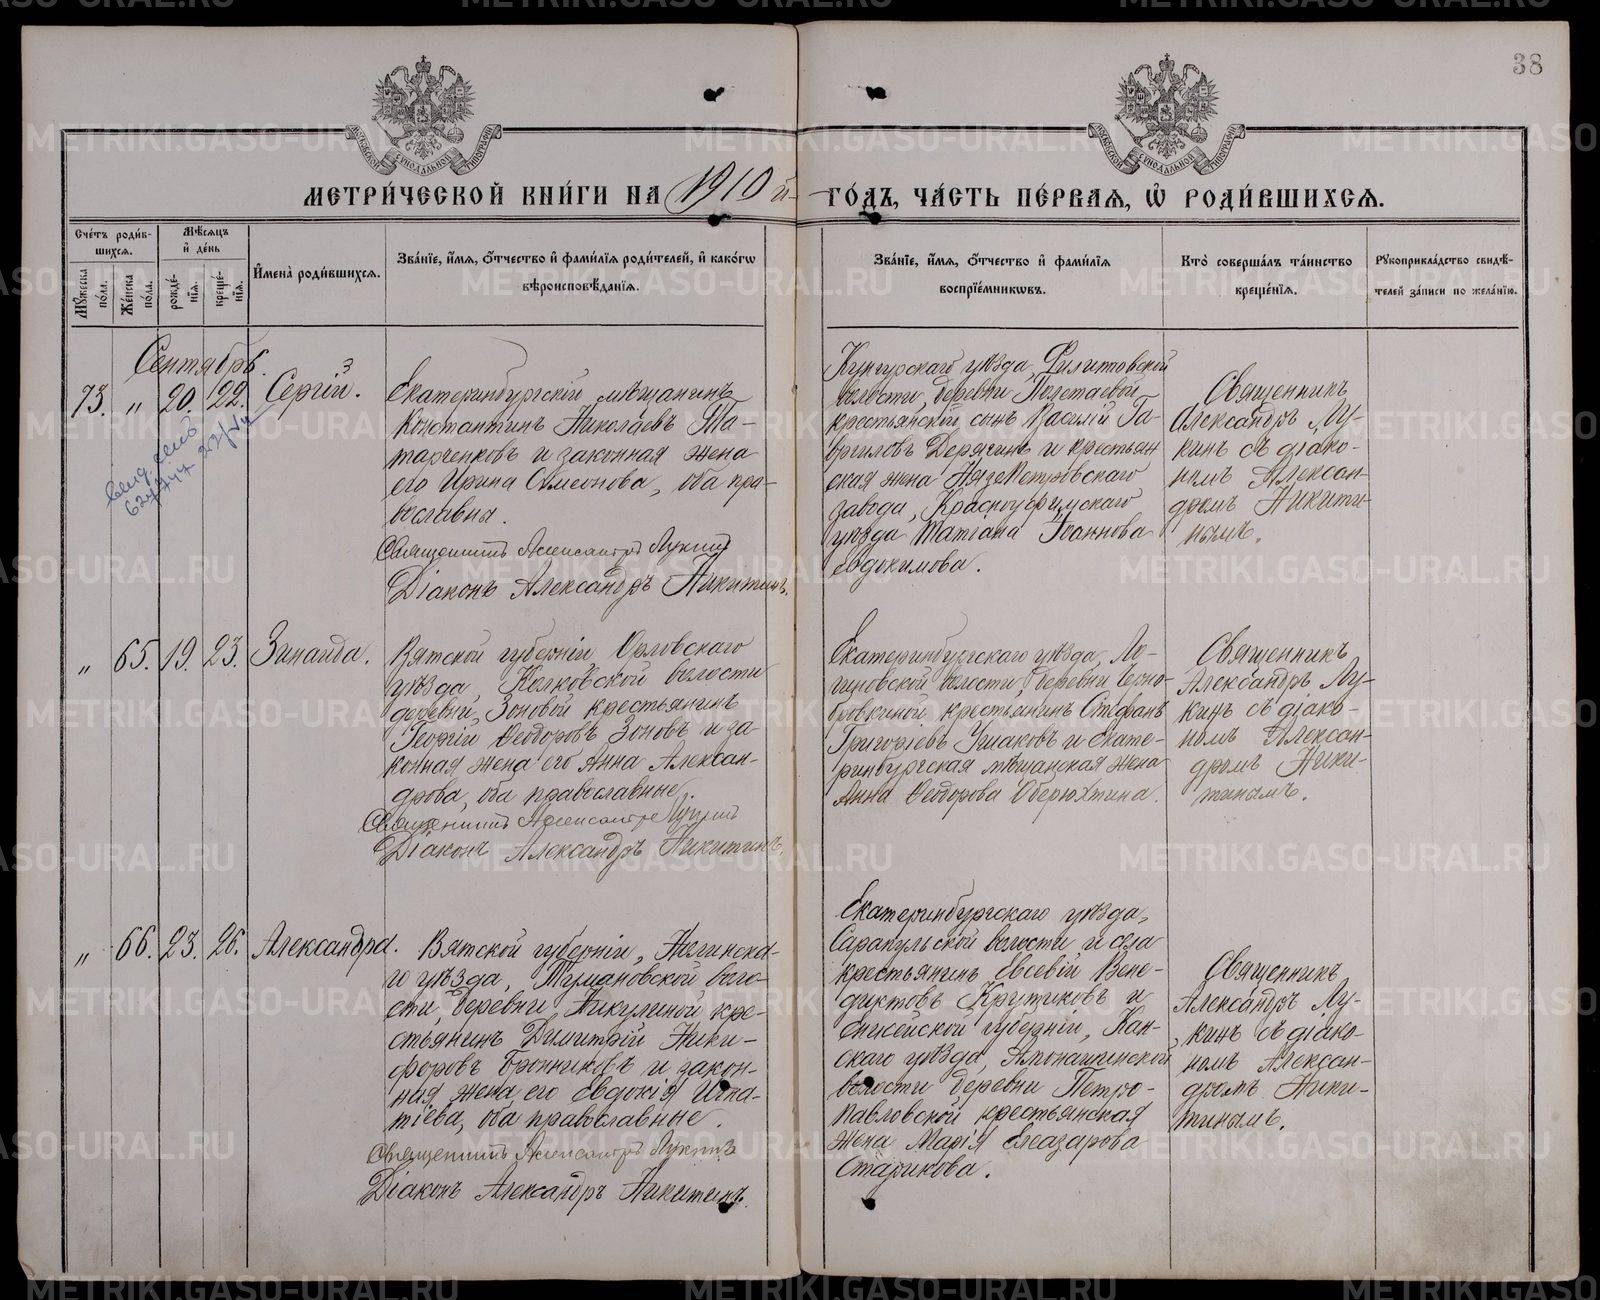 38
МЕТРИ́ЧЕСКОЙ КНИ́ГИ НА 1910 й ГО́ДЪ, ЧА́СТЬ ПЕ́РВАѦ, Ѡ҆ РОДИ́ВШИХСѦ.
Сче́тъ роди́в-
шихсѧ.
Мꙋ́жеска по́ла.
Же́нска по́ла.
Мѣ́сѧцъ
и҆ де́нь
рожде́-
нїѧ.
креще́-
нїѧ.
И҆мена̀ роди́вшихсѧ.
Зва́нїе, и҆́мѧ, ѻ҆́тчество и҆ фами́лїѧ роди́телей, и҆ како́гѡ
вѣроисповѣ́данїѧ.
Зва́нїе, и҆́мѧ, ѻ҆́тчество и҆ фами́лїѧ
воспрїе́мникѡвъ.
Кто̀ соверша́лъ та́инство
креще́нїѧ.
Рꙋкоприкла́дство свидѣ́-
телей за́писи по жела́нїю.
Сентябрь.
73. " 20. 22. Сергій.
Екатеринбургскій мѣщанинъ
Константинъ Николаевъ Та-
тарченковъ и законная жена
его Ирина Симеонова, оба пра-
вославны.
Священникъ Александръ Лукинъ
Діаконъ Александръ Никитинъ.
Кунгурскаго уѣзда, Филиповской
волости, деревни Полетаевой
крестьянскій сынъ Василій Га-
вриловъ Дерягинъ и крестьян
ская жена Нязепетровскаго
завода, Красноуфимскаго
уѣзда Татіана Іоаннова
Евдокимова.
Священникъ
Александръ Лу-
кинъ съ діако-
номъ Алексан-
дромъ Никити-
нымъ.
" 65. 19. 23. Зинаида.
Вятской губерніи Орловскаго
уѣзда, Колковской волости
деревни, Зоновой крестьянинъ
Георгій Ѳеодоровъ Зоновъ и за-
конная жена его Анна Алексан-
дрова, оба православные.
Священникъ Александръ Лукинъ
Діаконъ Александръ Никитинъ.
Екатеринбургскаго уѣзда, Ло-
гиновской волости, деревни Черно-
бровкиной, крестьянинъ Стефанъ
Григорьевъ Ушаковъ и Екате-
ринбургская мѣщанская жена
Анна Ѳеодорова Оберюхтина.
Священникъ
Александръ Лу-
кинъ съ діако-
номъ Алексан-
дромъ Ники-
тинымъ.
" 66. 23. 26. Александра.
Вятской губерніи, Нолинска-
го уѣзда, Тумановской воло-
сти, деревни Никулиной кре-
стьянинъ Димитрій Ники-
форовъ Бронниковъ и закон-
ная жена его Евдокія Игна-
тіева, оба православные.
Священникъ Александръ Лукинъ
Діаконъ Александръ Никитинъ.
Екатеринбургскаго уѣзда,
Сарапульской волости и села
крестьянинъ Евсевій Вене-
диктовъ Крутиковъ и
Енисейской губерніи, Кан-
скаго уѣзда, Амонашинской
волости деревни Петро-
павловской крестьянская
жена Марія Елеазарова
Старикова.
Священникъ
Александръ Лу-
кинъ съ діако-
номъ Алексан-
дромъ Ники-
тинымъ.
METRIKI.GASO-URAL.RU